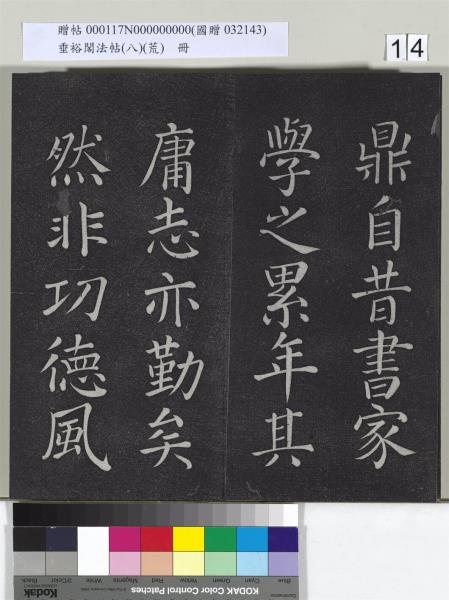 贈帖 000117N000000000(國贈 032143)
垂裕閣法帖(八)(荒) 冊
14
鼎自昔書家
學之累年其
庸志亦勤矣
然非功德風
Blue Cyan Green Yellow Red Magenta White 3/Color Black
Kodak
KODAK Color Control Patches